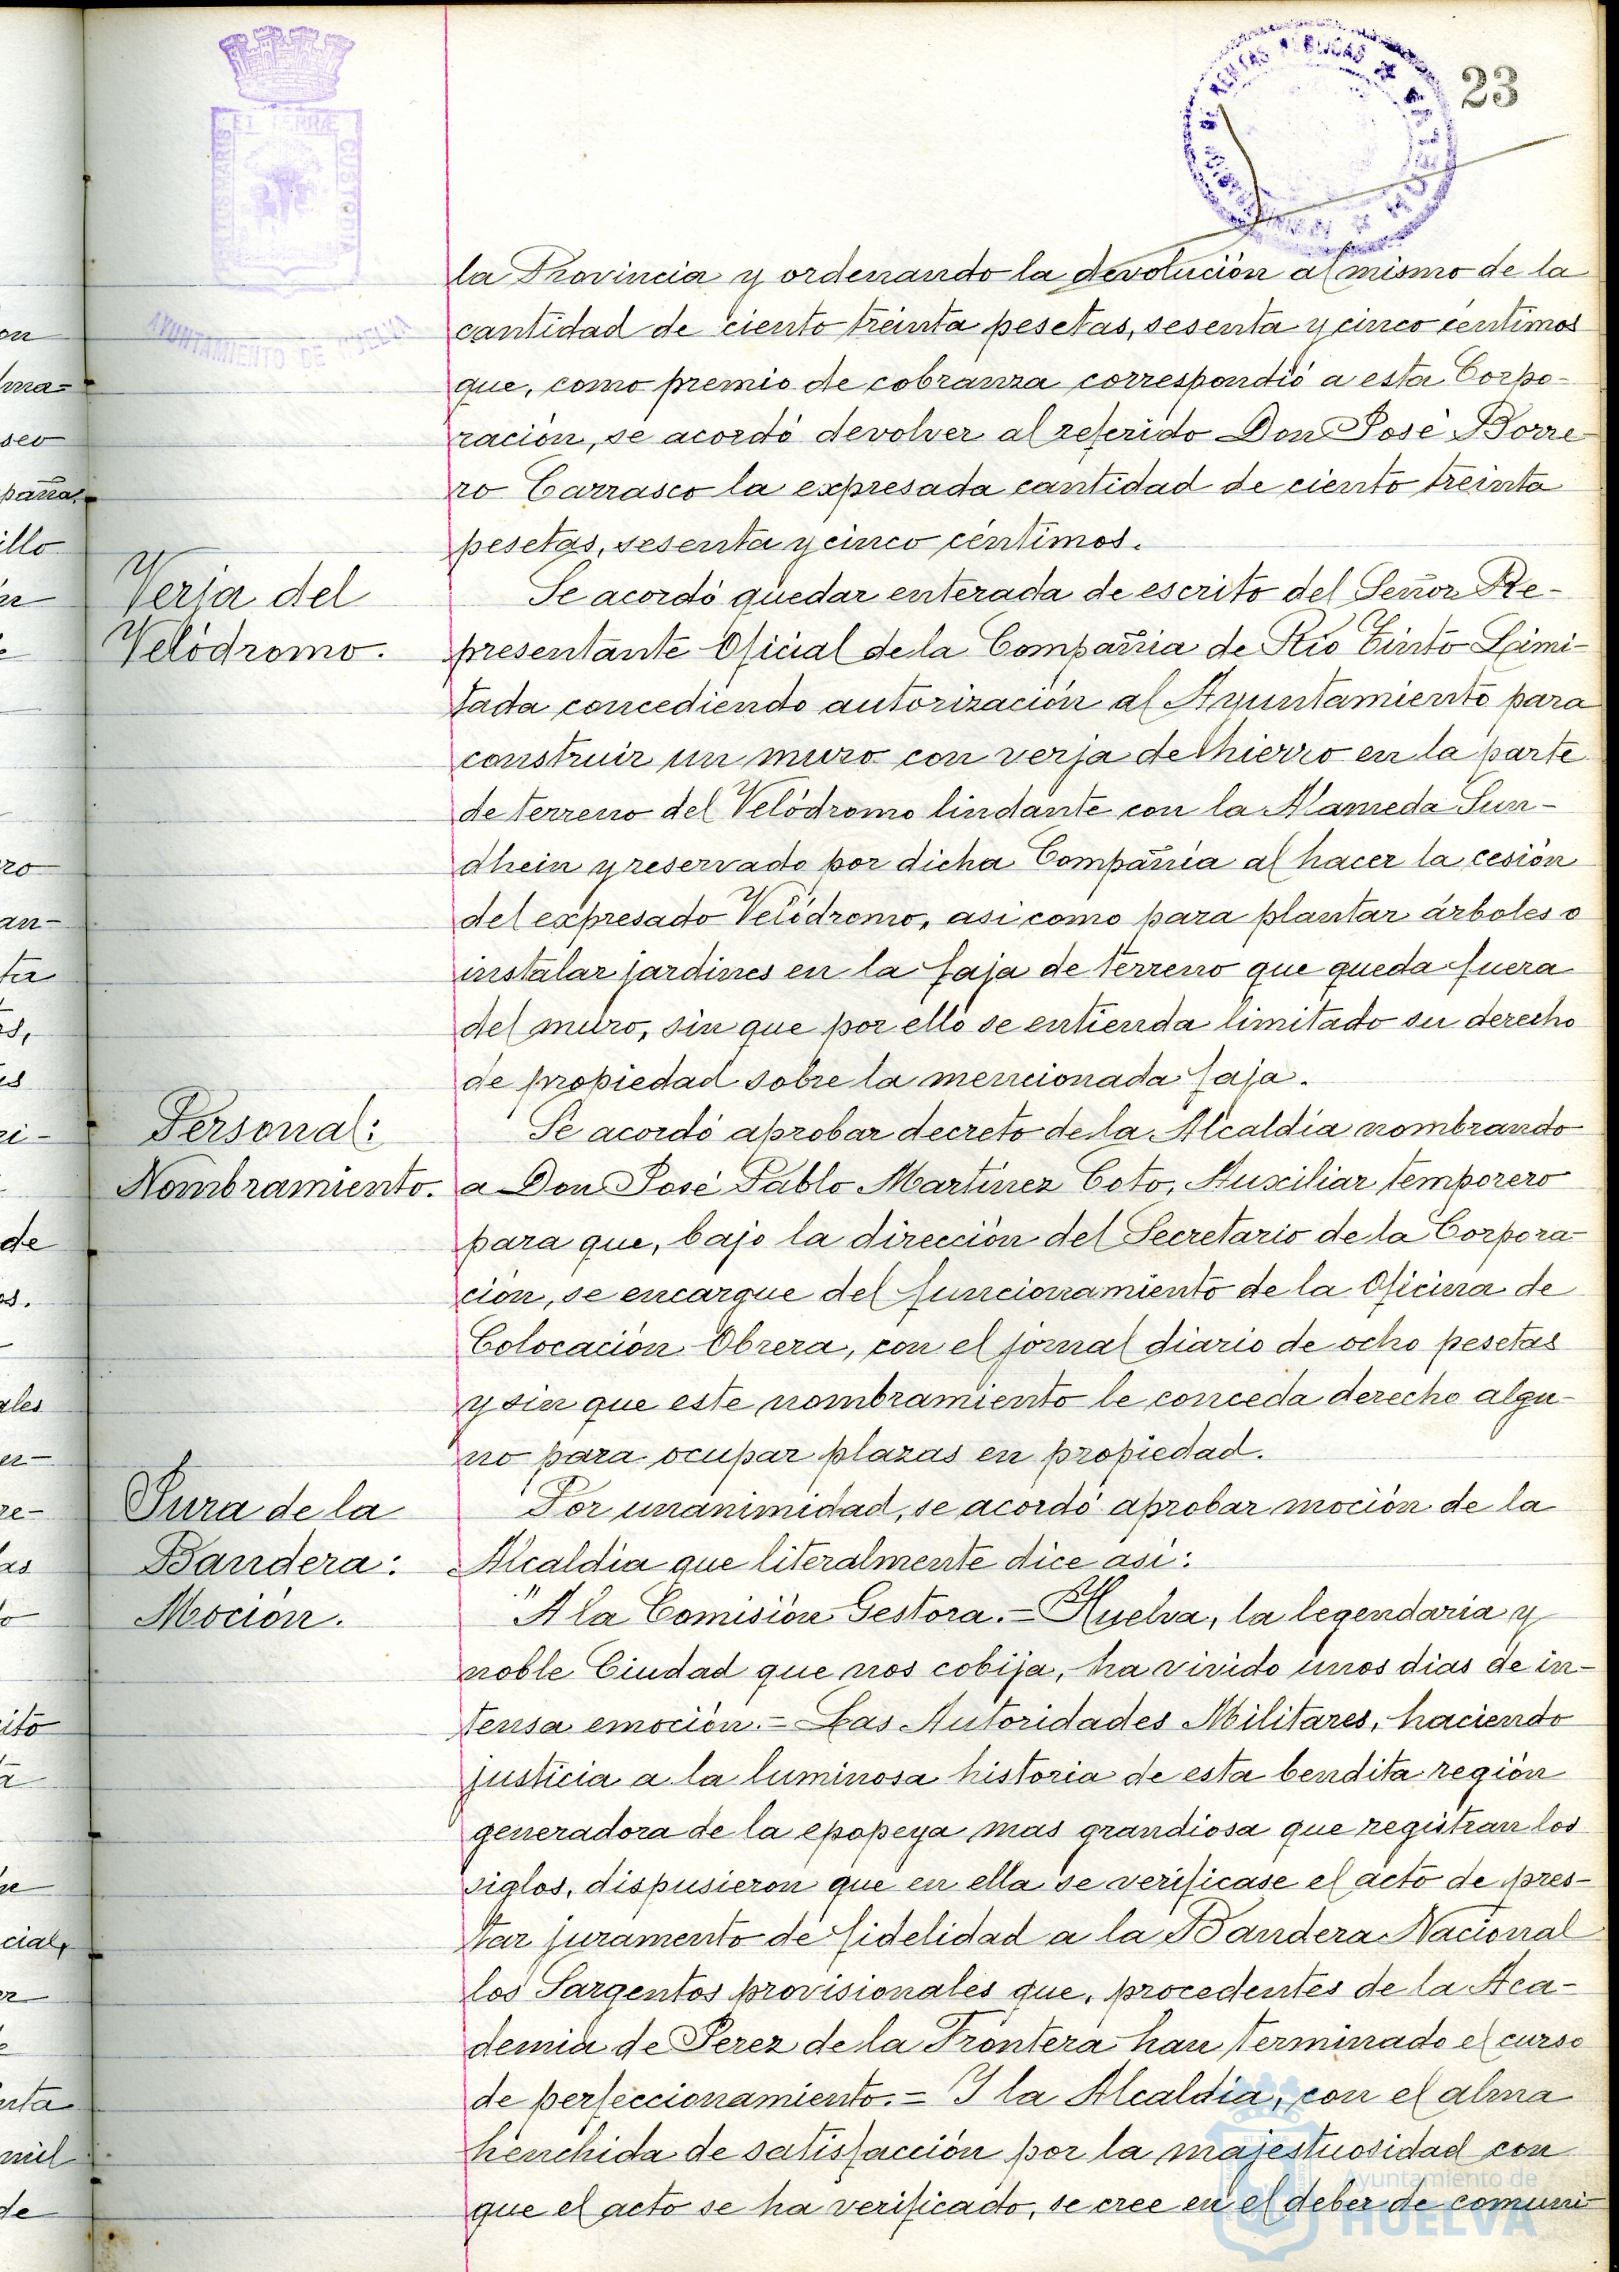 23
AYUNTAMIENTO DE HUELVA
la Provincia y ordenando la devolución al mismo de la
cantidad de ciento treinta pesetas, sesenta y cinco céntimos
que, como premio de cobranza correspondió a esta Corpo-
ración, se acordó devolver al referido Don José Borre-
ro Carrasco la expresada cantidad de ciento treinta
pesetas, sesenta y cinco céntimos.
Verja del
Velódromo.
Se acordó quedar enterada de escrito del Señor Re-
presentante Oficial de la Compañia de Rio Tinto Limi-
tada concediendo autorización al Ayuntamiento para
construir un muro con verja de hierro en la parte
de terreno del Velódromo lindante con la Alameda Sun-
dhein y reservado por dicha Compañía al hacer la cesión
del expresado Velódromo, asi como para plantar árboles o
instalar jardines en la faja de terreno que queda fuera
del muro, sin que por ello se entienda limitado su derecho
de propiedad sobre la mencionada faja.
Personal:
Nombramiento.
Se acordó aprobar decreto de la Alcaldía nombrando
a Don José Pablo Martínez Coto, Auxiliar temporero
para que, bajo la dirección del Secretario de la Corpora-
ción, se encargue del funcionamiento de la Oficina de
Colocación Obrera, con el jornal diario de ocho pesetas
y sin que este nombramiento le conceda derecho algu-
no para ocupar plazas en propiedad.
Jura de la
Bandera:
Moción.
Por unanimidad, se acordó aprobar moción de la
Alcaldía que literalmente dice asi:
"A la Comisión Gestora.= Huelva, la legendaria y
noble Ciudad que nos cobija, ha vivido unos dias de in-
tensa emoción.= Las Autoridades Militares, haciendo
justicia a la luminosa historia de esta bendita región
generadora de la epopeya mas grandiosa que registran los
siglos, dispusieron que en ella se verificase el acto de pres-
tar juramento de fidelidad a la Bandera Nacional
los Sargentos provisionales que, procedentes de la Aca-
demia de Jerez de la Frontera han terminado el curso
de perfeccionamiento.= Y la Alcaldía, con el alma
henchida de satisfacción por la majestuosidad con
que el acto se ha verificado, se cree en el deber de comuni-
Ayuntamiento de
HUELVA